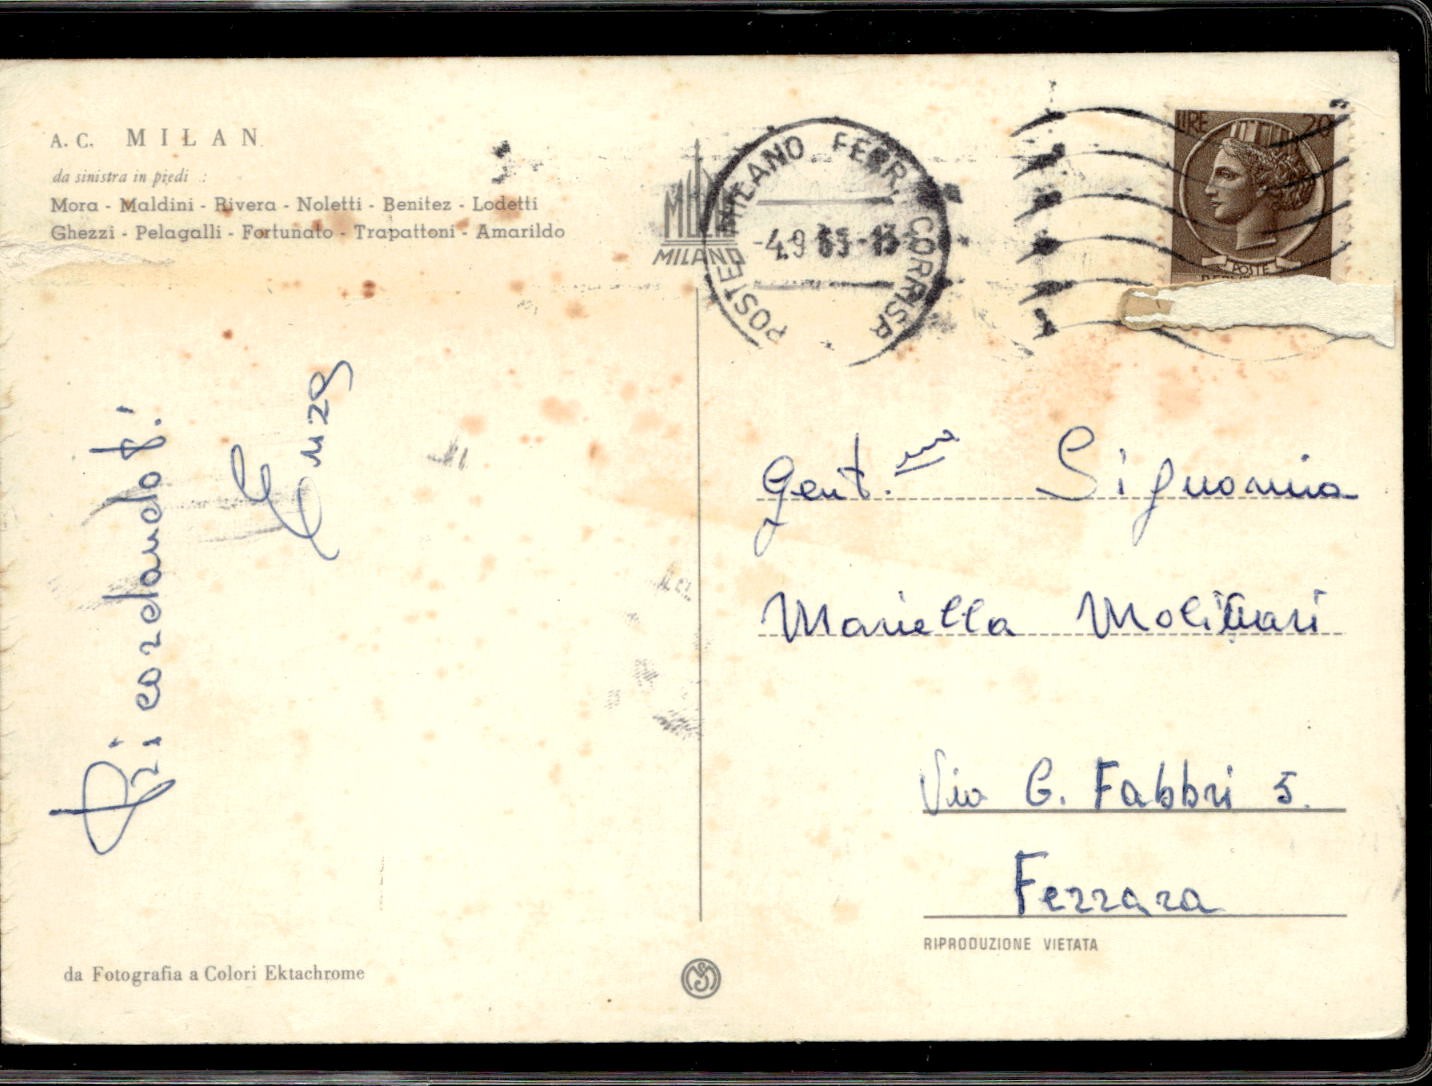 A. C. MILAN
da sinistra in piedi :
Mora - Maldini - Rivera - Noletti - Benitez - Lodetti
Ghezzi - Pelagalli - Fortunato - Trapattoni - Amarildo
MILANO
POSTE MILANO FERR. CORRISP
-4.9 65-13
LIRE 20
POSTE
Ricordando!
Enzo
Gent.ma Signorina
Mariella Molinari
Via G. Fabbri 5.
Ferrara
RIPRODUZIONE VIETATA
da Fotografia a Colori Ektachrome